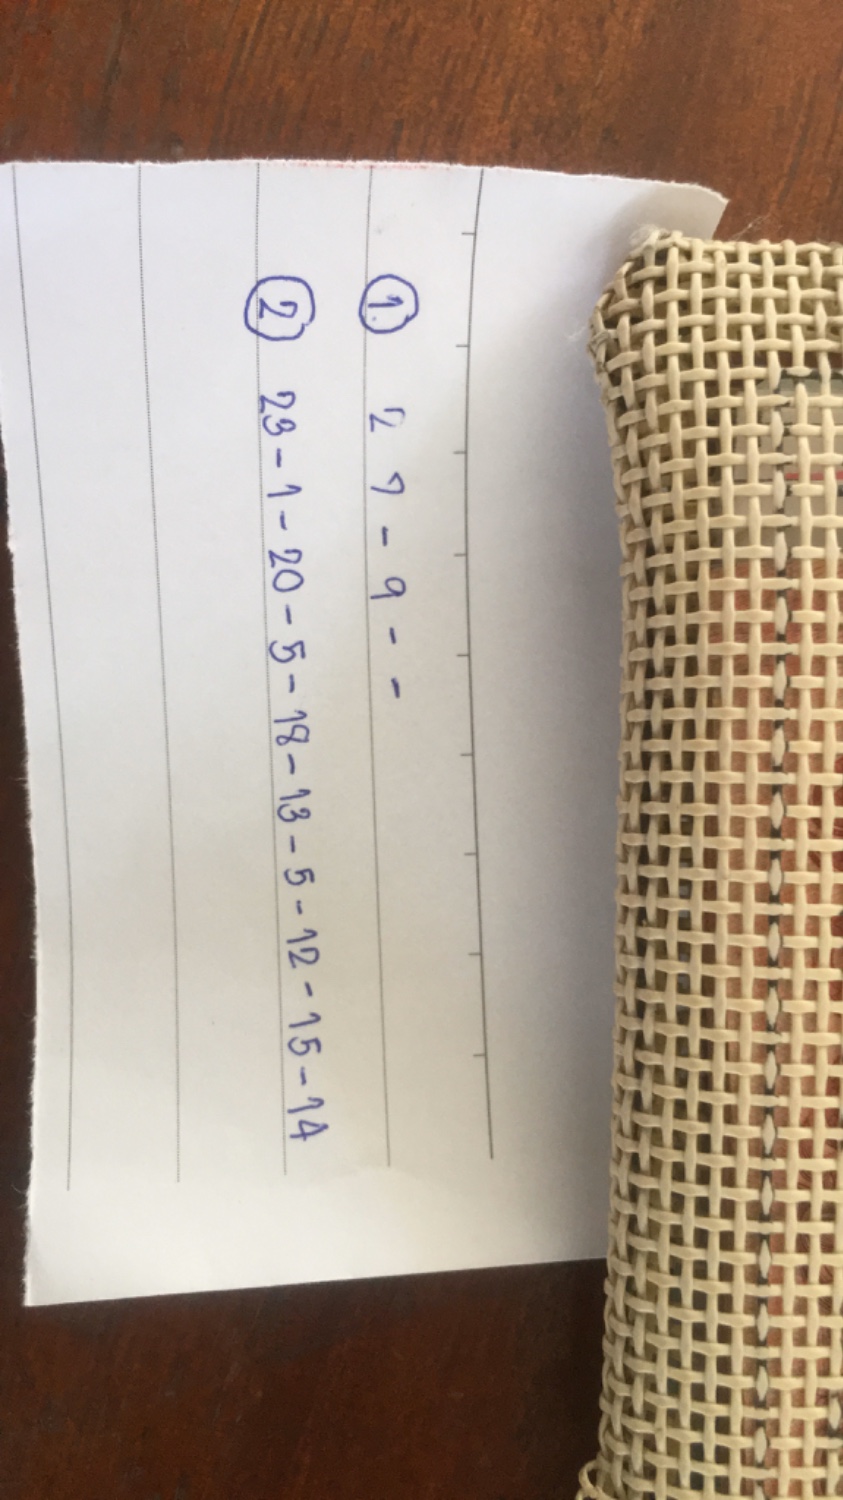 ① 2 7 - 9 - -
② 23 - 1 - 20 - 5 - 18 - 13 - 5 - 12 - 15 - 14